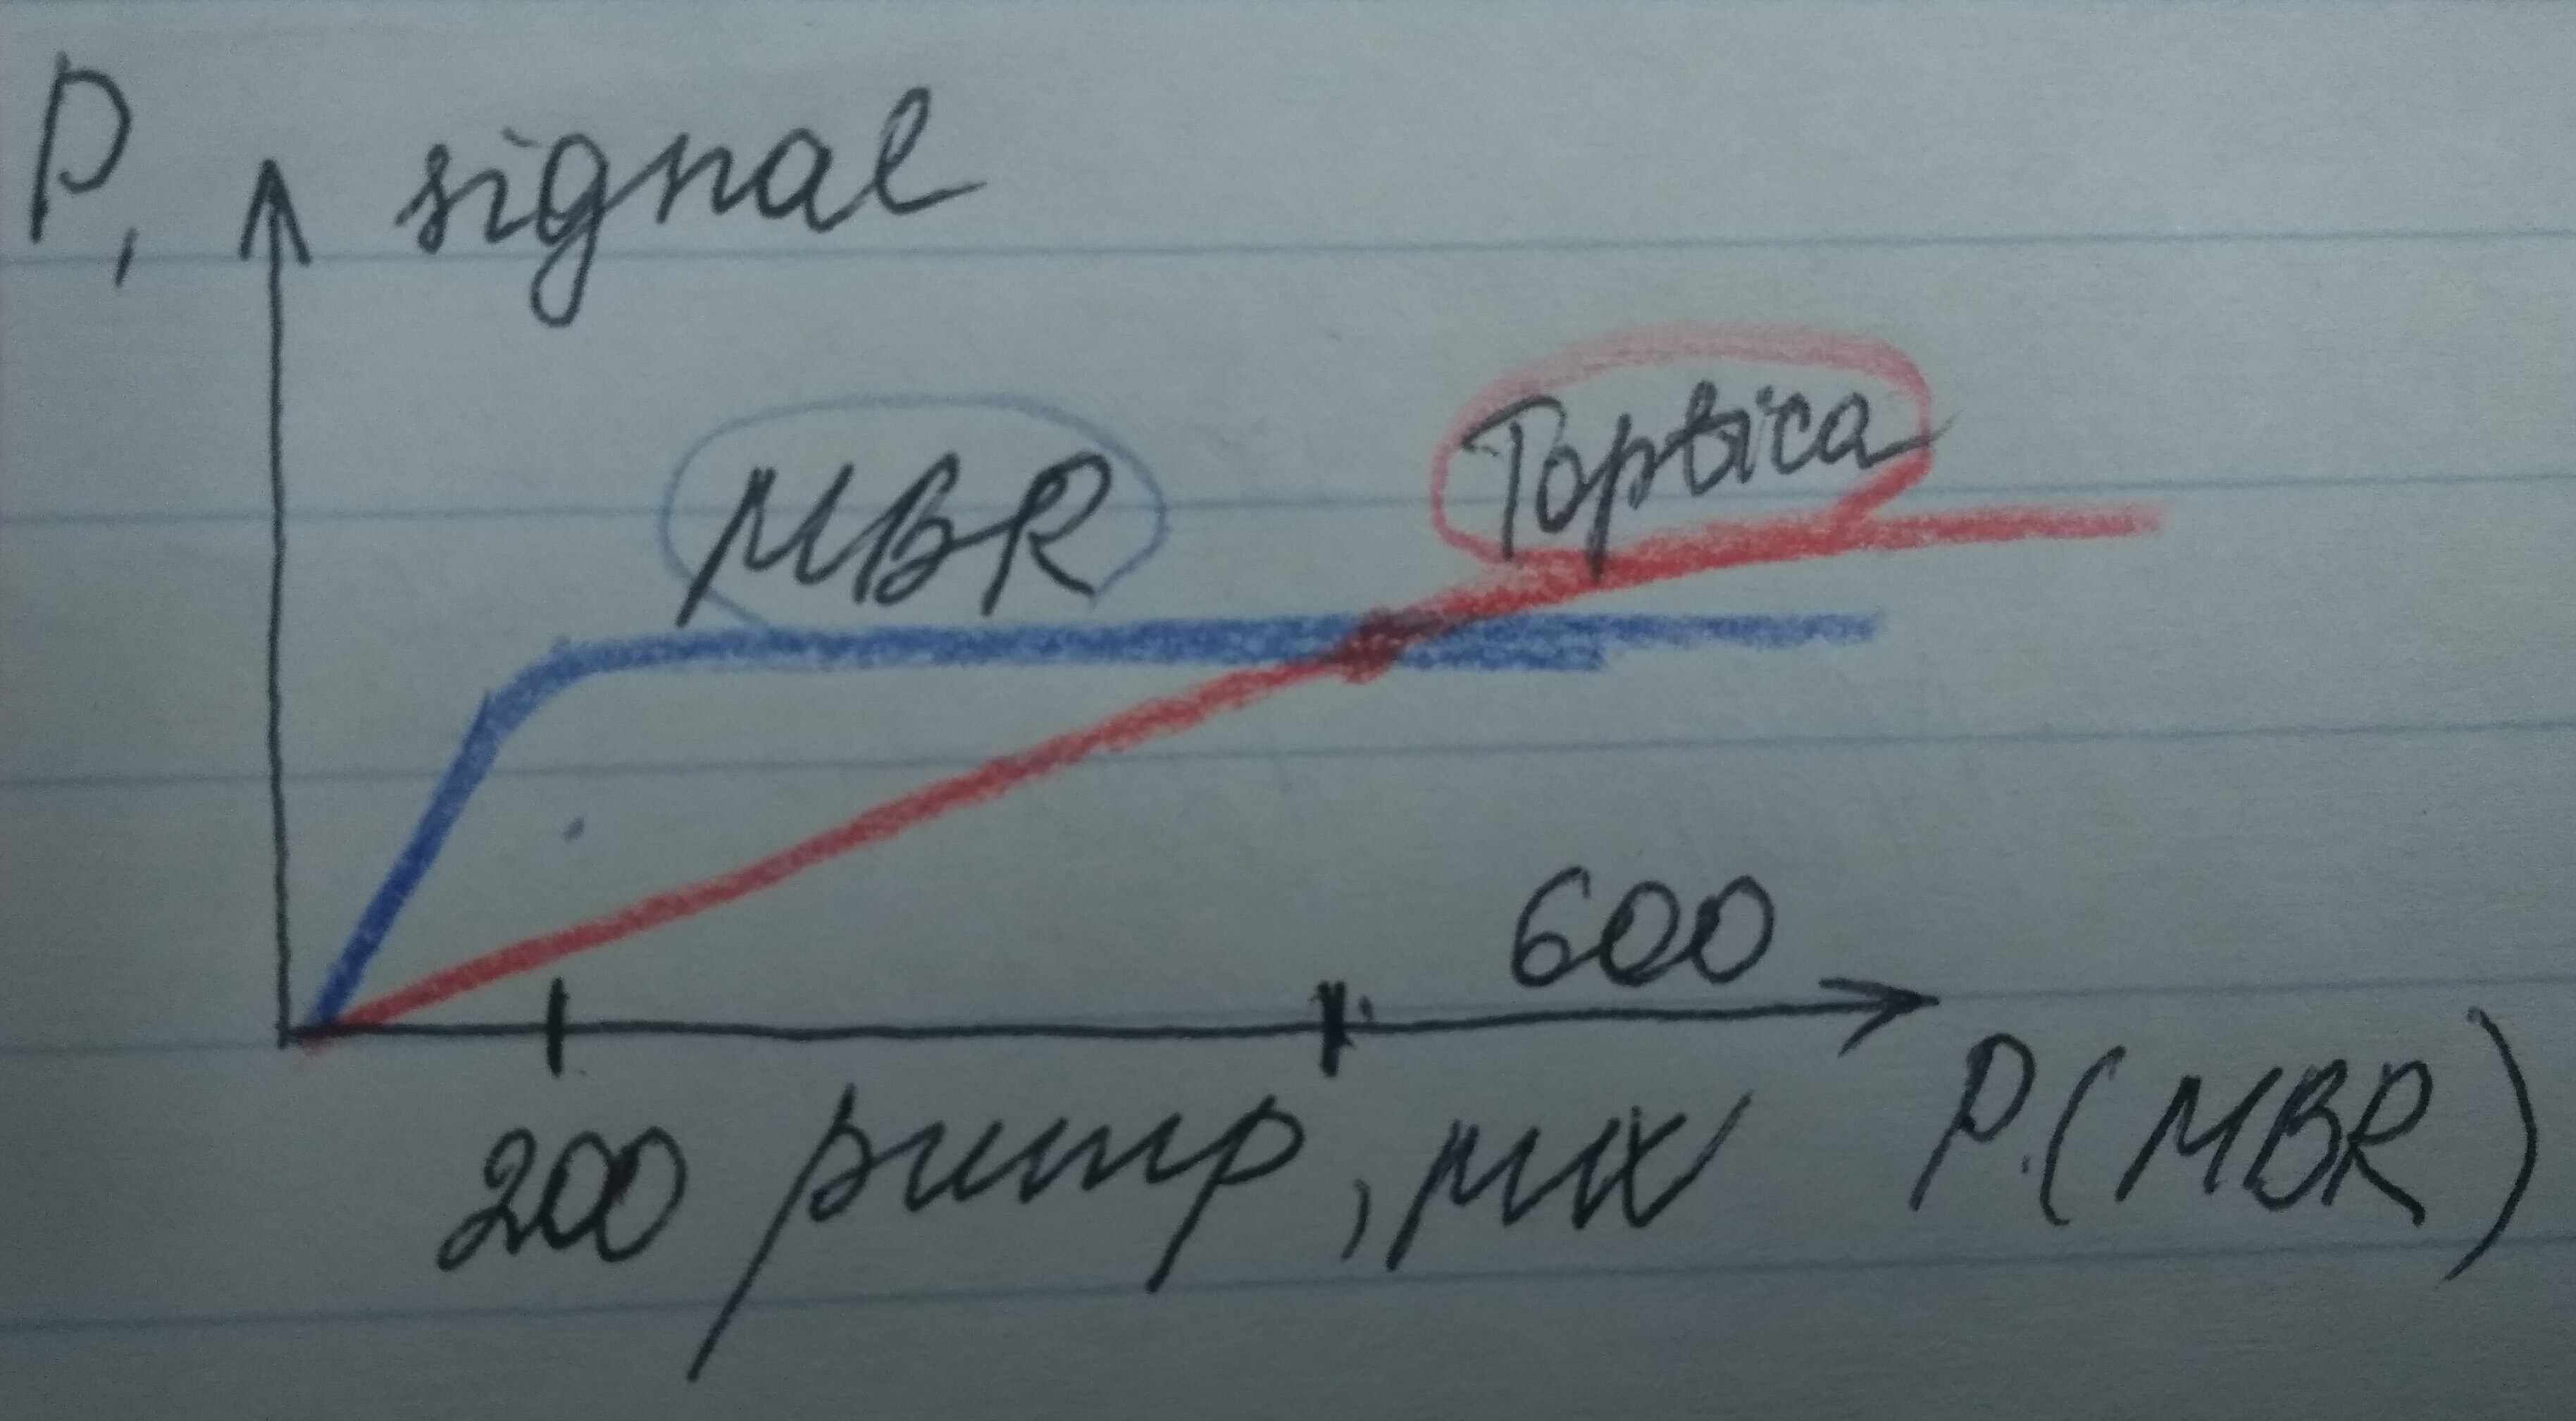 P, signal
MBR
Toptica
600
200 pump, mW P.(MBR)